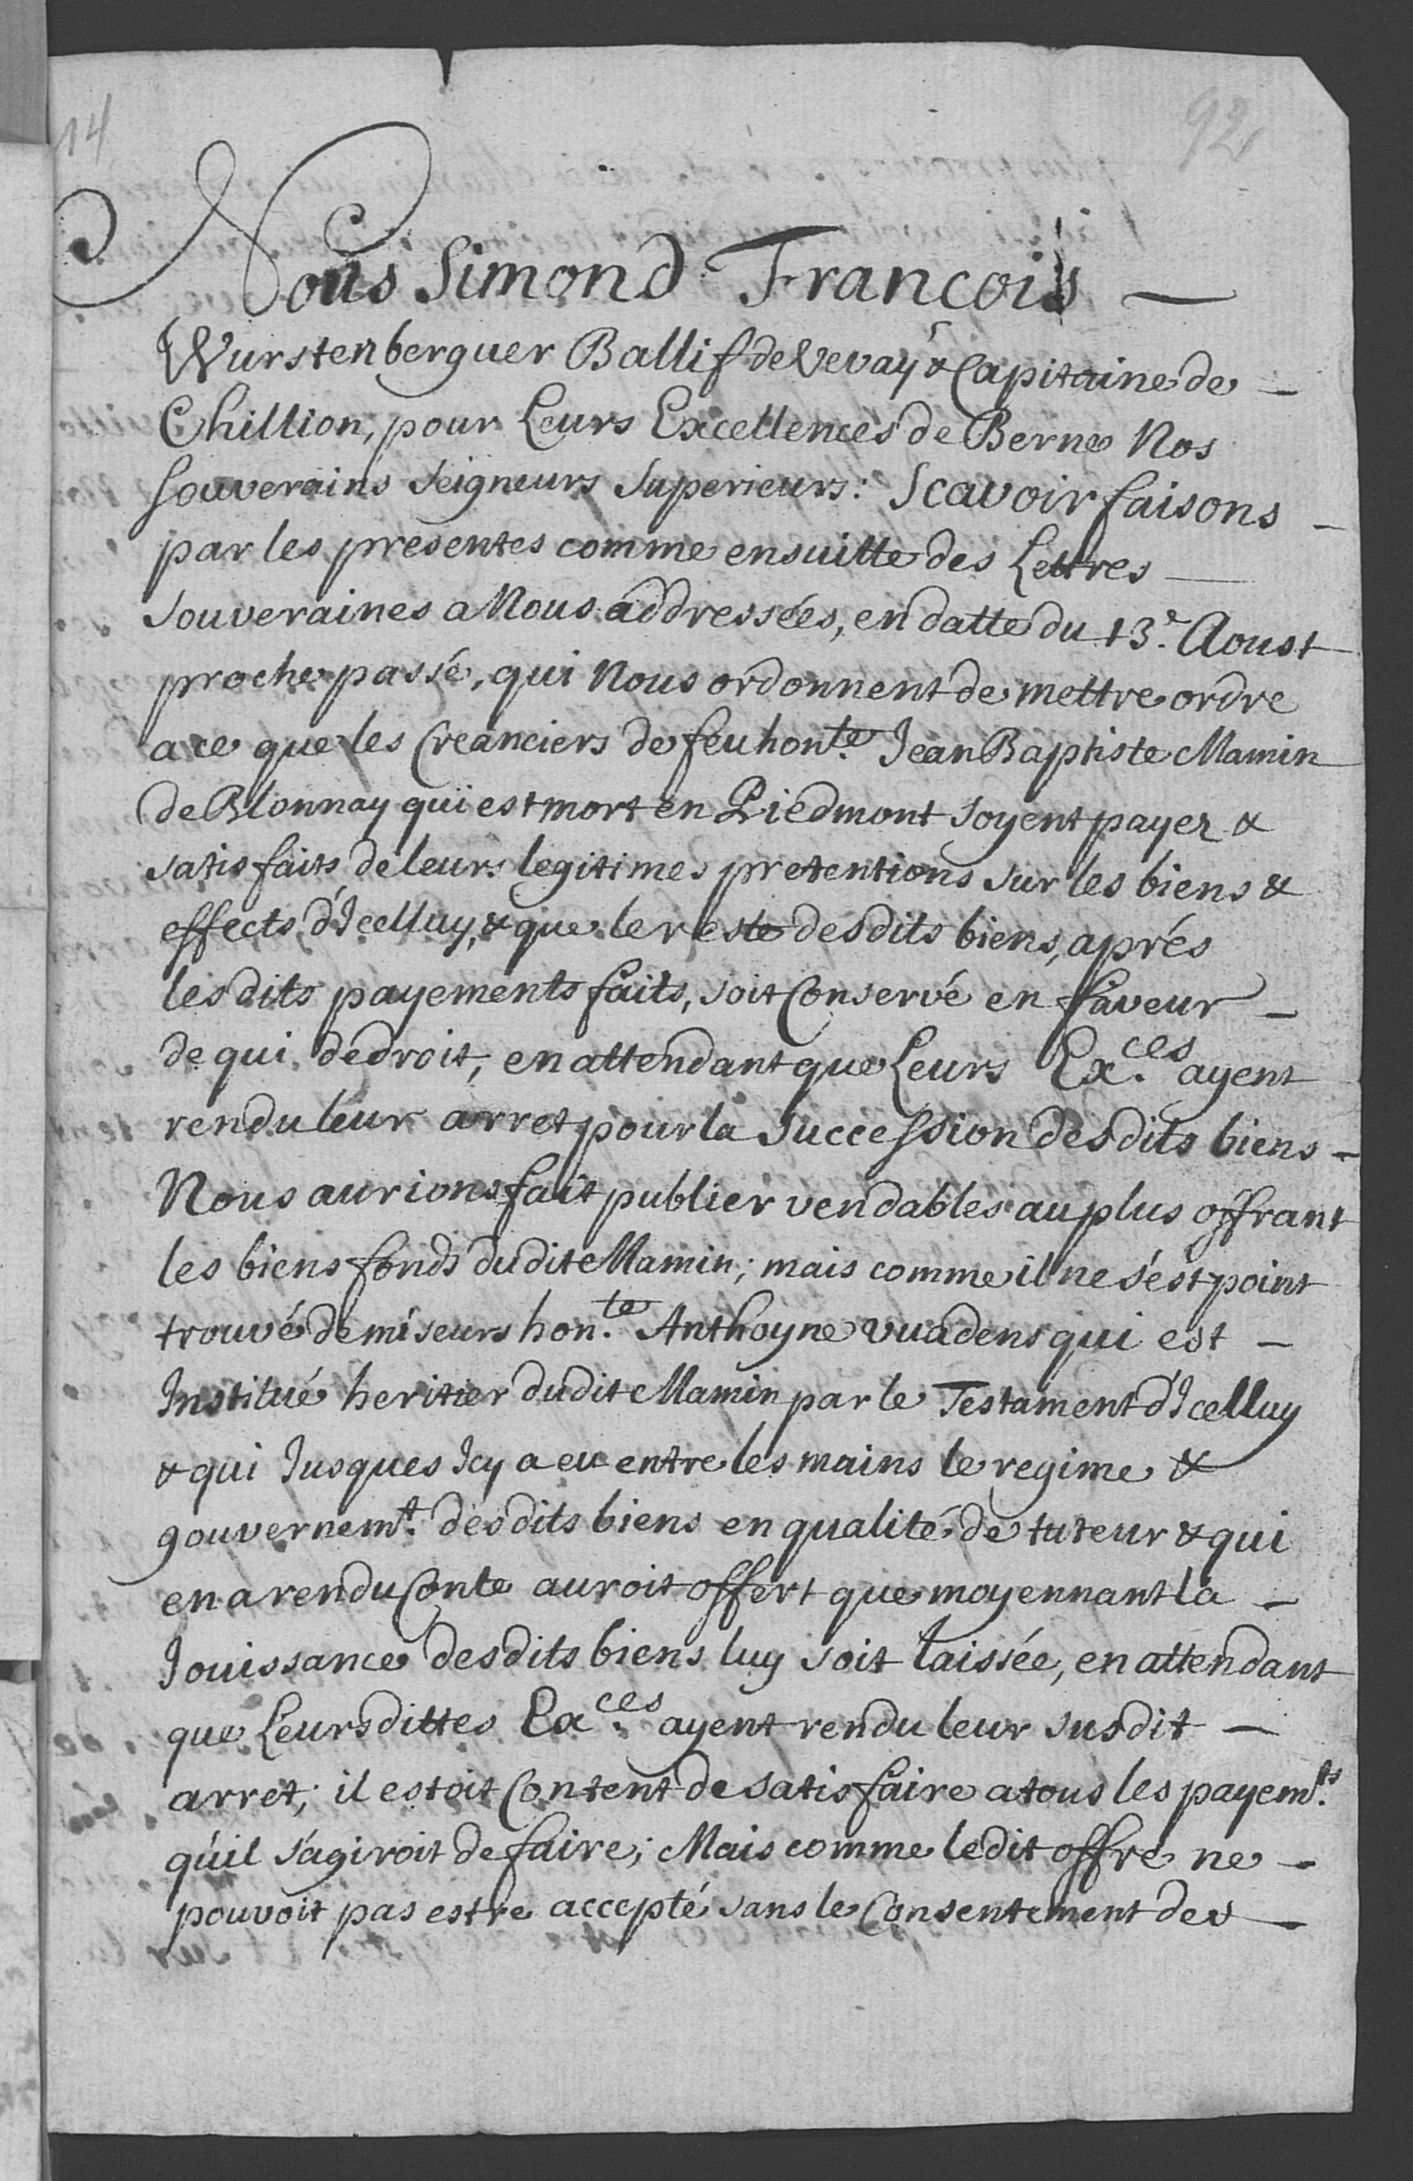 14
92
Nous Simond François —
Wurstenberguer Ballif de Vevay & Capitaine de —
Chillion, pour Leurs Excellences de Berne Nos
souverains Seigneurs Superieurs: Scavoir faisons —
par les presentes comme ensuitte des Lettres —
souveraines a Nous addressées, en datte du 13.e Aoust
proche passé, qui Nous ordonnent de mettre ordre
a ce que les Creanciers de feu hon.te Jean Baptiste Mamin
de Blonnay qui est mort en Piedmont soyent payez &
satisfaits de leurs legitimes pretentions sur les biens &
effects d'Icelluy, & que le reste desdits biens, aprés
lesdits payements faits, soit Conservé en faveur —
de qui de droit, en attendant que Leurs Ex.ces ayent
rendu leur arret pour la Succession desdits biens —
Nous aurions fait publier vendables au plus offrant
les biens fonds dudit Mamin; mais comme il ne s'est point
trouvé de miseurs hon.te Anthoyne Vuadens qui est —
Institué heritier dudit Mamin par le Testament d'Icelluy
& qui Jusques Icy a eu entre les mains le regime &
gouvernem.t desdits biens en qualité de tuteur & qui
en a rendu Conte auroit offert que moyennant la —
Jouissance desdits biens luy soit laissée, en attendant
que Leursdittes Ex.ces ayent rendu leur susdit —
arret; il estoit Content de satisfaire a tous les payem.ts
qu'il s'agiroit de faire; Mais comme ledit offre ne —
pouvoit pas estre accepté sans le Consentement des —